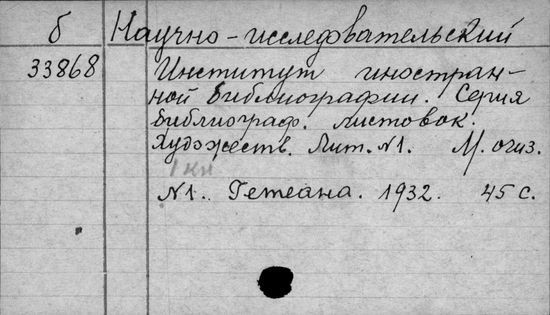 б Научно-исследовательский
33868 Институт иностран-
ной библиографии. Серия
библиограф. листовок.
Художеств. Лит. №1. М. огиз.
1 кн
№1. Гетеана. 1932. 45 с.